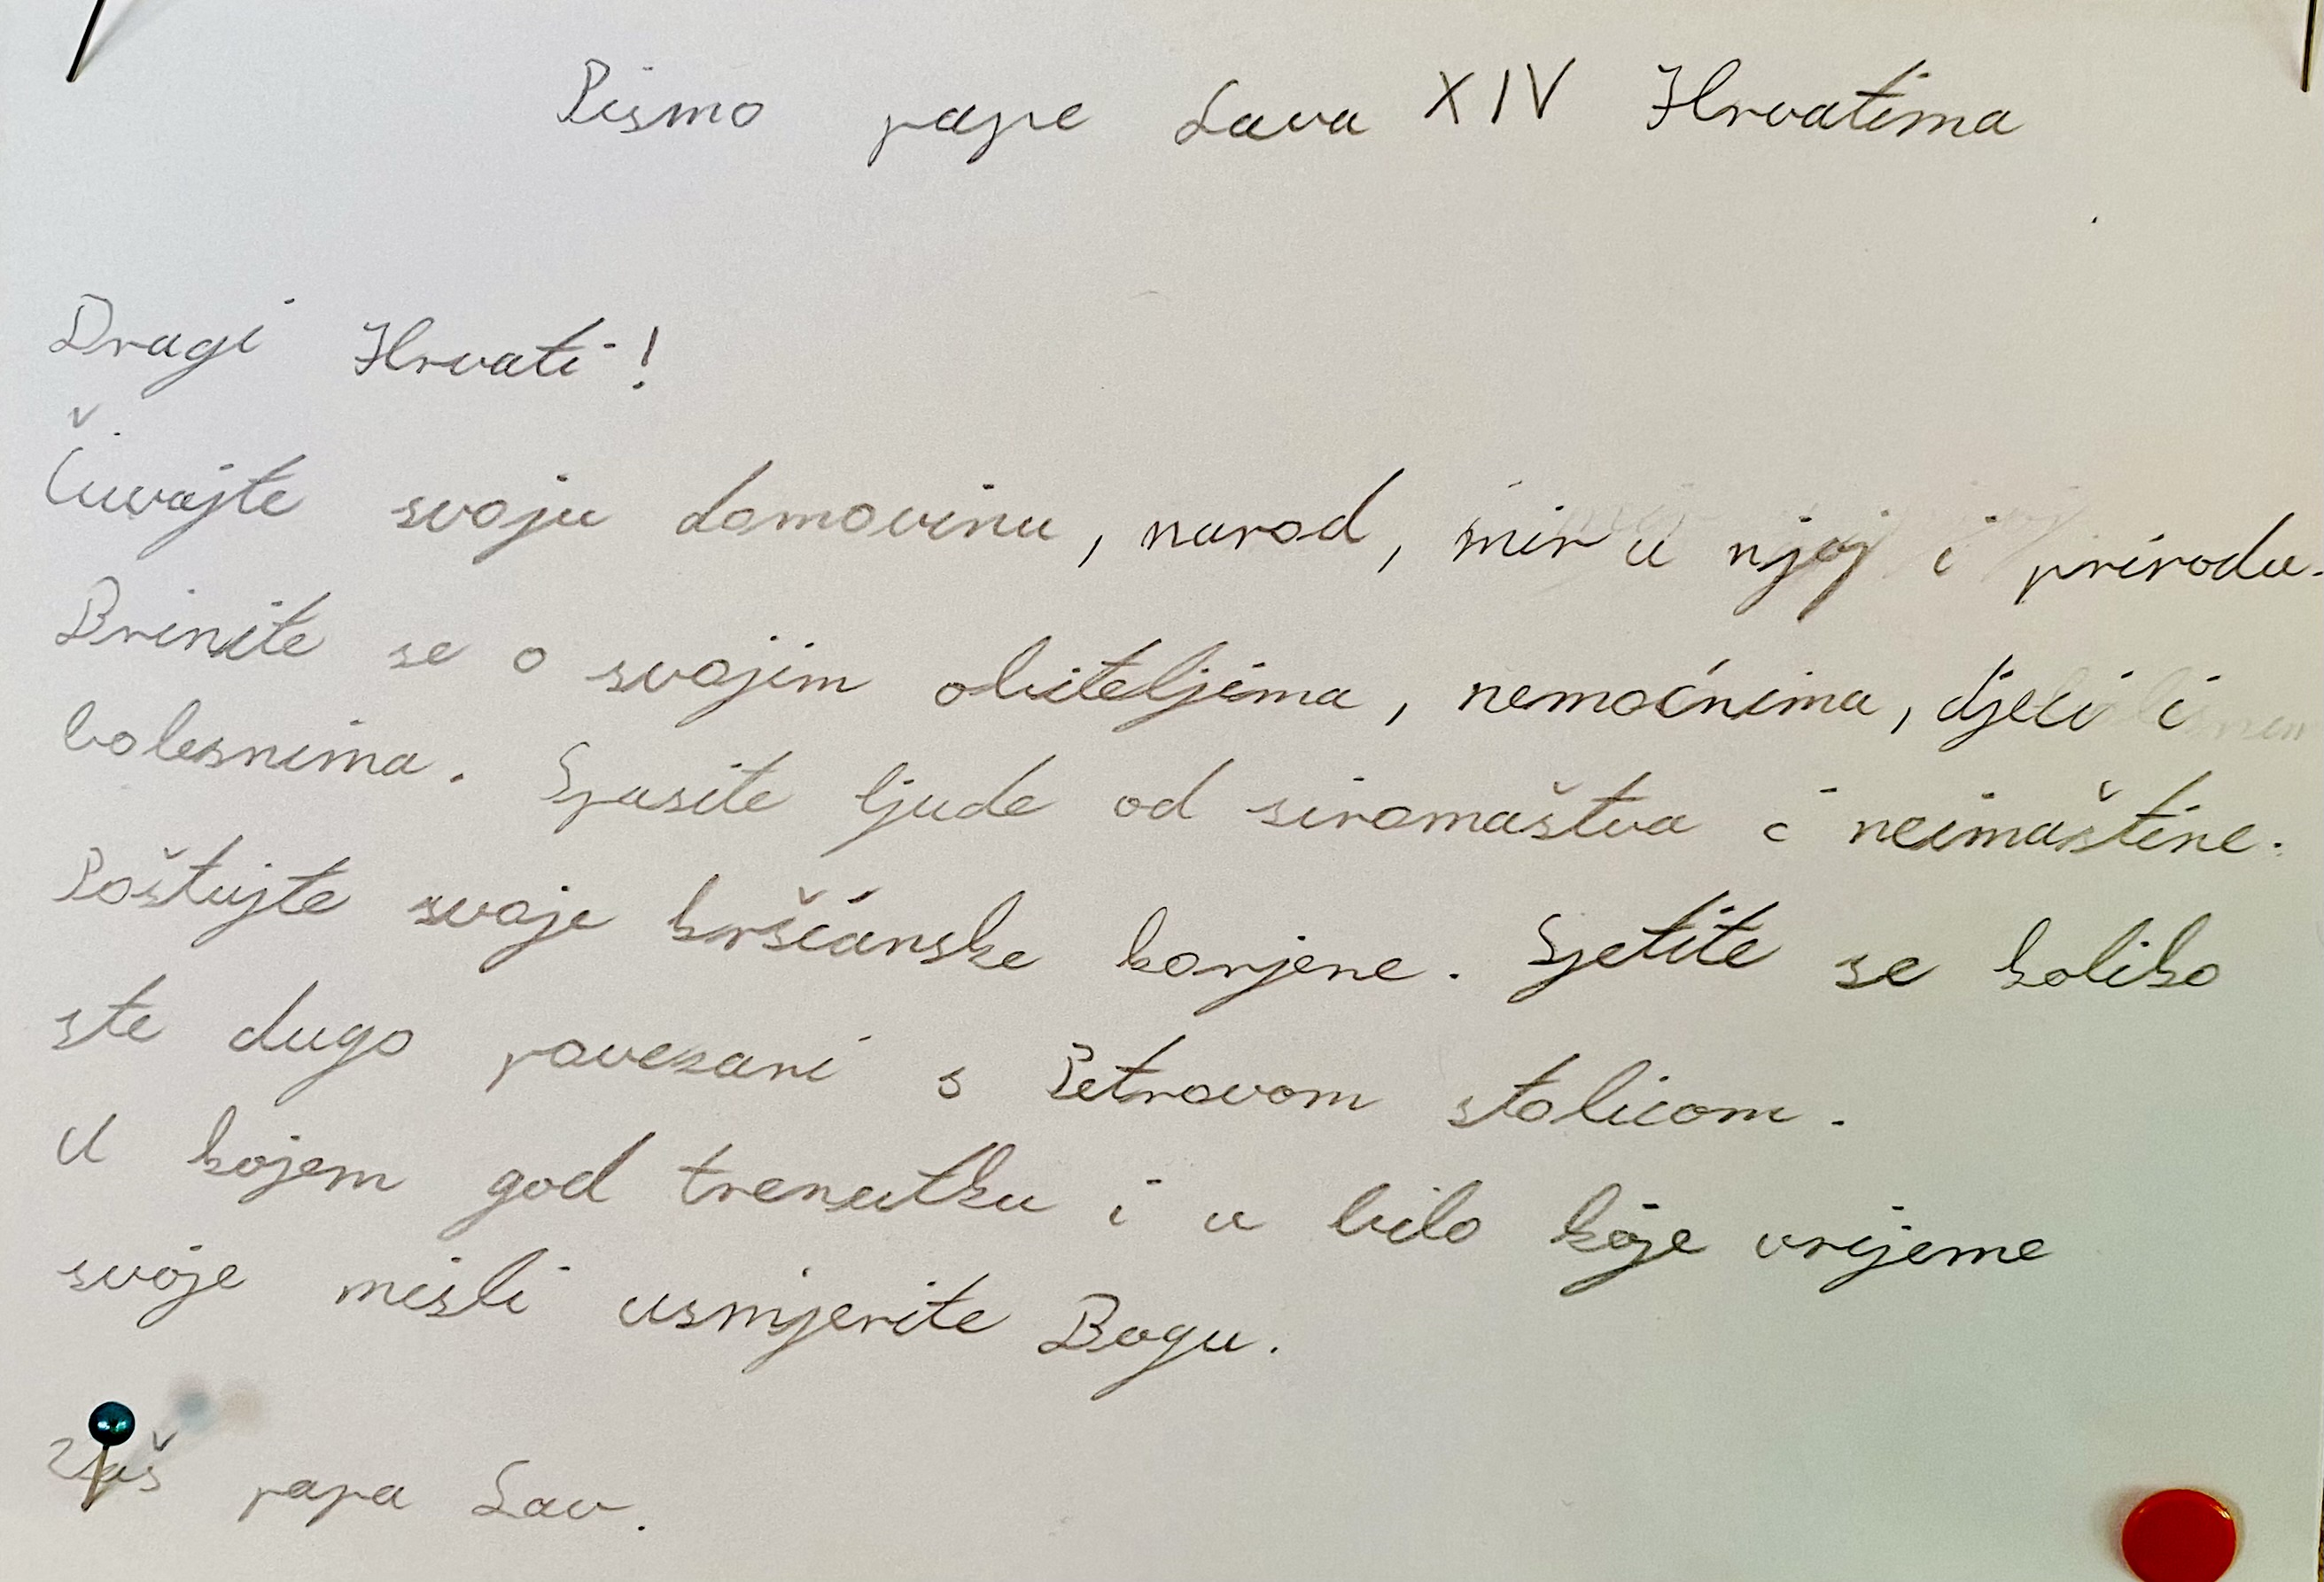 Pismo pape Lava XIV Hrvatima
Dragi Hrvati!
Čuvajte svoju domovinu, narod, mir u njoj i prirodu.
Brinite se o svojim obiteljima, nemoćnima, djeci i
bolesnima. Spasite ljude od siromaštva i neimaštine.
Poštujte svoje kršćanske korjene. Sjetite se koliko
ste dugo povezani s Petrovom stolicom.
U kojem god trenutku i u bilo koje vrijeme
svoje misli usmjerite Bogu.
Vaš papa Lav.